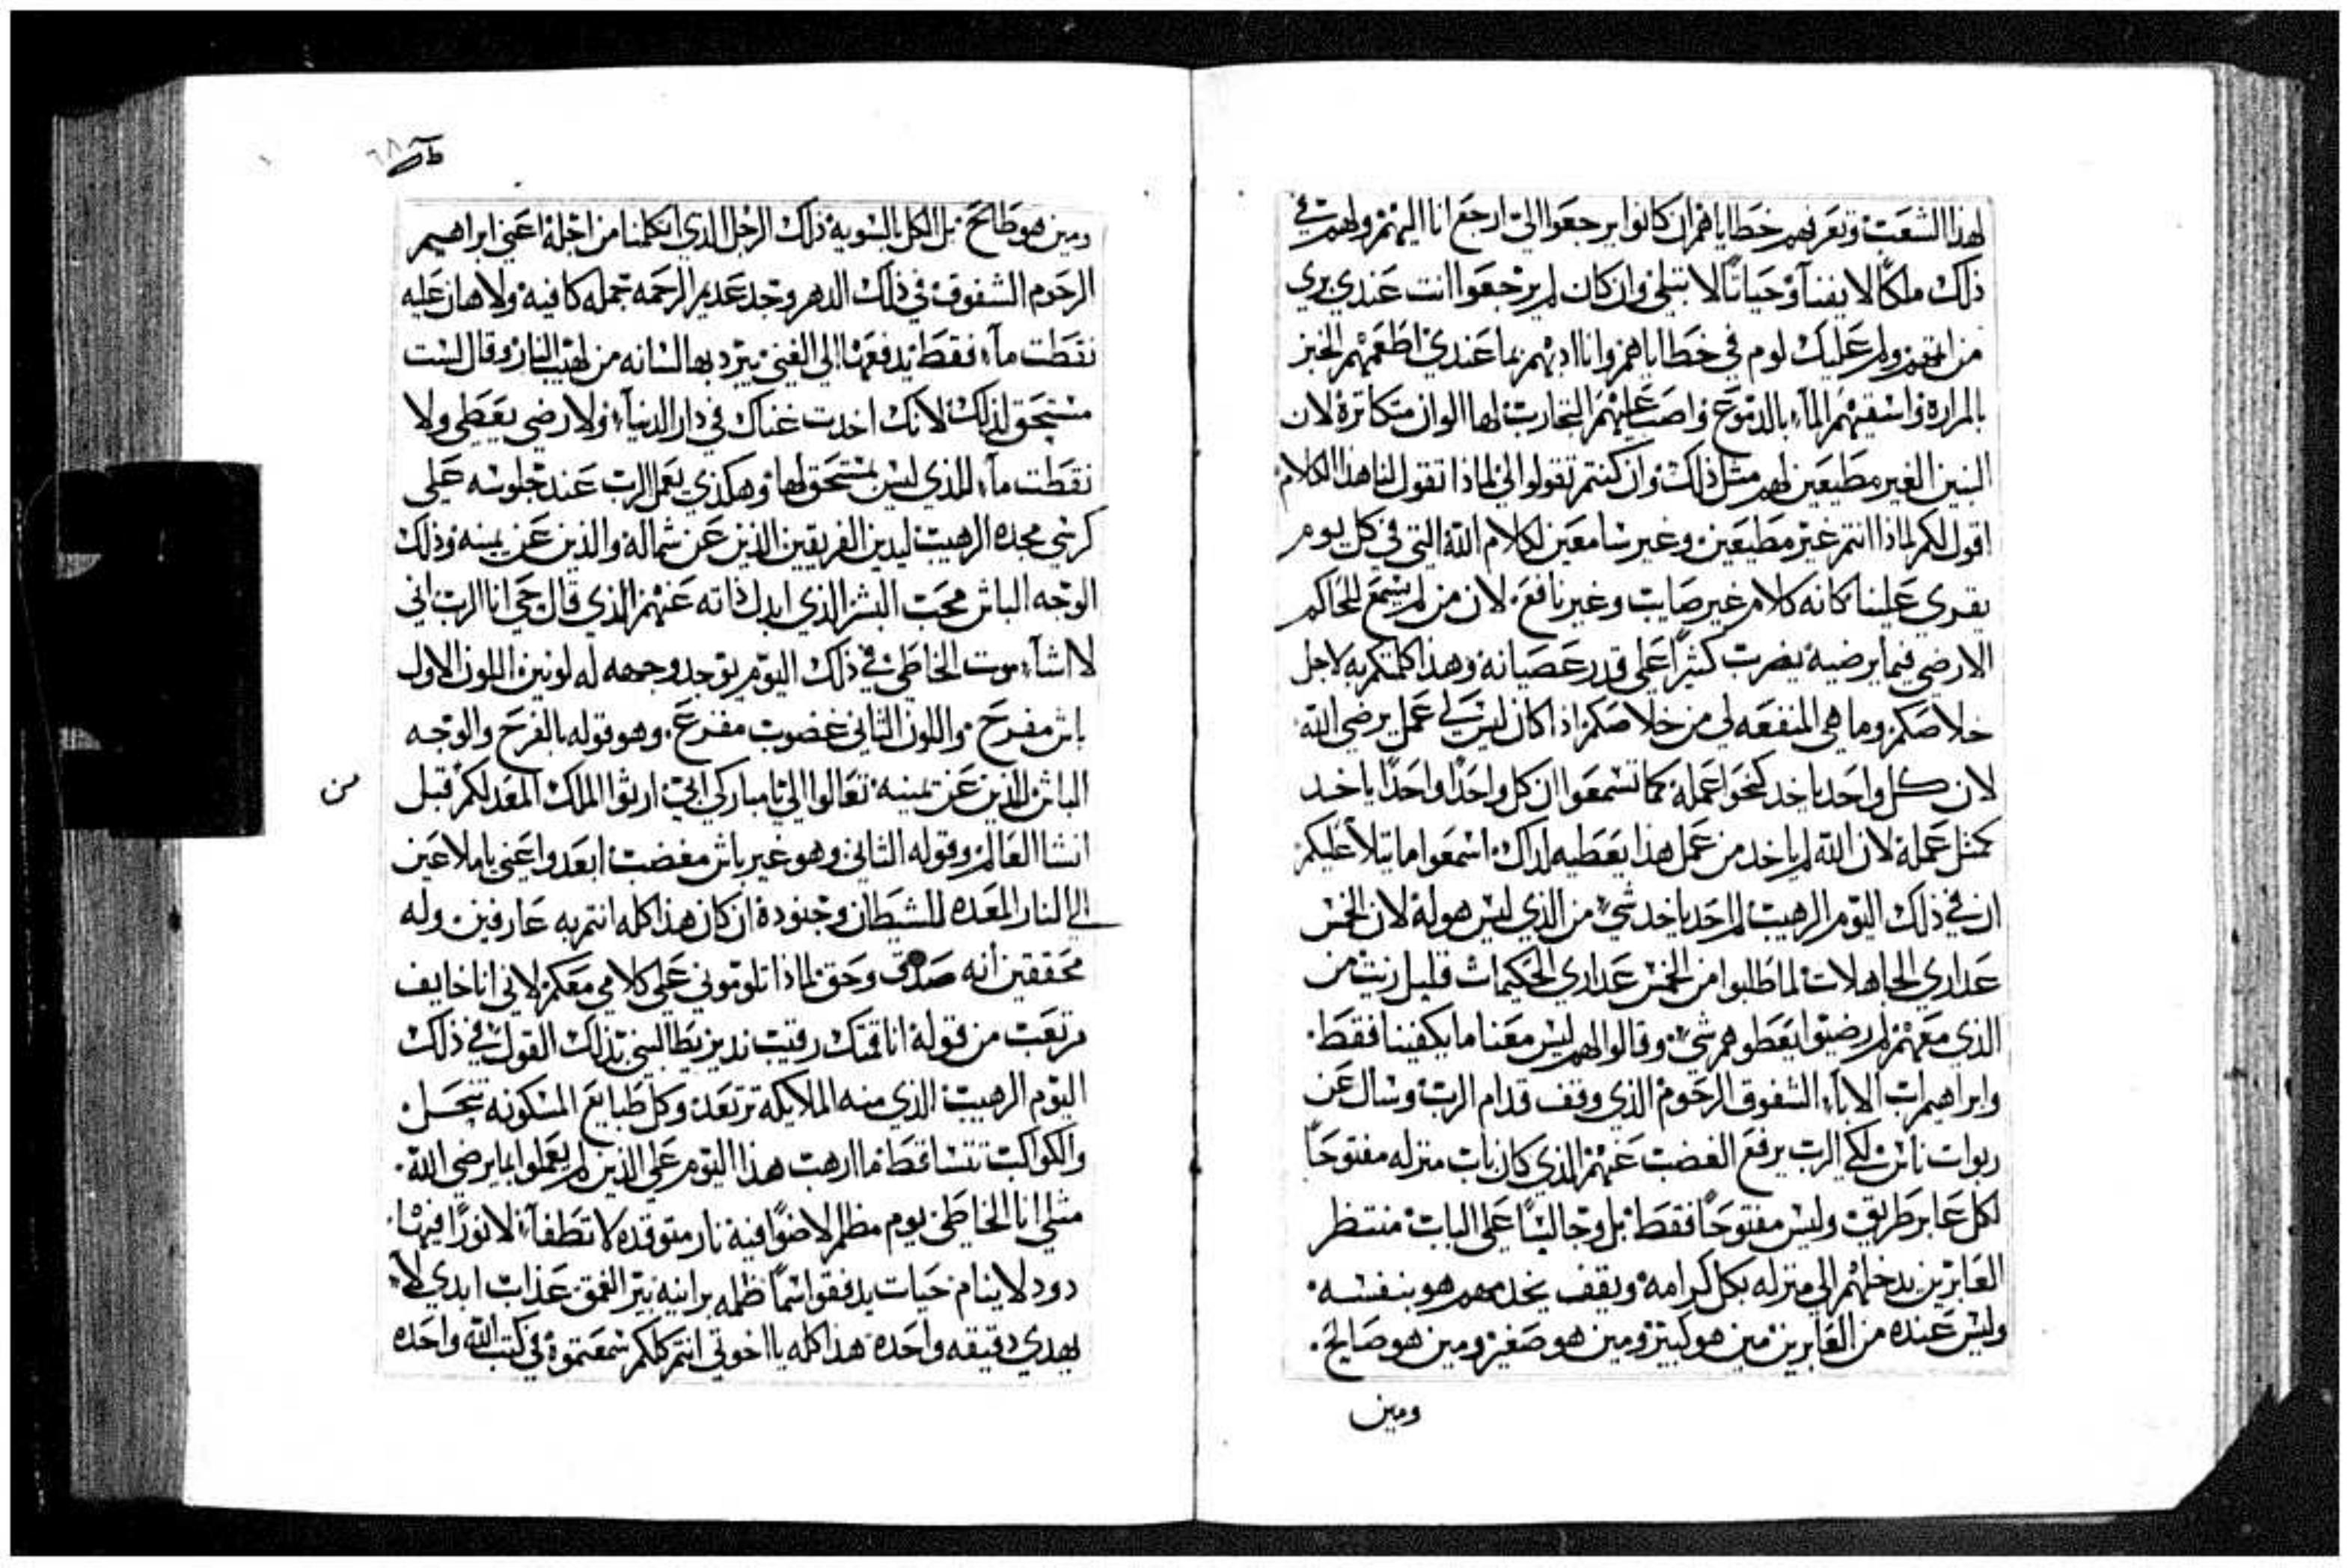 لهذا الشعب وتعرفهم خطاياهم ان كانوا يرجعوا الي ارجع انا اليهم ولهم في
ذلك ملكاً لا يفنآ وحياتاً لا تبلي وان كان لم يرجعوا انت عندي بري
من ولم عليك لوم في خطاياهم وانا اديهم بما عندي اطعمهم الخبز
بالمراره واسقيهم المآء بالدموع واصب عليهم التجارب لها الوان متكاتره لان
البنين الغير مطيعين لهم مثل ذلك وان كنتم تقولوا لي لماذا تقول لنا هذا الكلام
اقول لكم لماذا انتم غير مطيعين وغير سامعين لكلام الله التي في كل يوم
يقري علينا كانه كلام غير صايب وغير نافع لان من لم يسمع للحاكم
الارضي فيما يرضيه يضرب كثيراً علي قدر عصيانه وهذا كلمتكم به لاجل
خلاصكم وما هي المنفعه لي من خلاصكم اذا كان ليس لي عمل يرضي الله
لان كل واحد ياخد كنحو عمله كما تسمعوا ان كل واحداً واحداً ياخد
كمثل عمله لان الله لم ياخد من عمل هذا يعطيه لداك اسمعوا ما يتلا عليكم
ان في ذلك اليوم الرهيب لم احد ياخد شيء من الذي ليس هو له لان الخمس
عداري الجاهلات لما طلبوا من الخمس عداري الحكيمات قليل زيت من
الذي معهم لم رضيوا يعطوهم شيء وقالوا لهم ليس معنا ما يكفينا فقط
وابراهيم اب الاباء الشفوق الرحوم الذي وقف قدام الرب وسال عن
ربوات ناس لكي الرب يرفع الغضب عنهم الذي كان باب منزله مفتوحاً
لكل عابر طريق وليس مفتوحاً فقط بل وجالساً علي الباب منتظر
العابرين يدخلهم الي منزله بكل كرامه ويقف يخدمهم هو بنفسه
وليس عنده من العابرين مين هو كبير ومين هو صغير ومين هو صالح
ومين
ومين هو طالح بل الكل بالسويه ذلك الرجل الذي اتكلمنا من اجله اعني ابراهيم
الرحوم الشفوق في ذلك الدهر وجد عديم الرحمه بجمله كافيه ولا هان عليه
نقطت مآء فقط يدفعها الي الغني يبرد بها لسانه من لهيب النار وقال لست
مستحق لذلك لانك اخدت غناك في دار الدنيآ ولا رضي يعطي ولا
نقطت مآء للذي ليس يستحق لها وهكذي يعمل الرب عند جلوسه علي
كرسي مجده الرهيب ليدين الفريقين الذين عن شماله والذين عن يمينه وذلك
الوجه الباش محب البشر الذي ابدل ذاته عنهم الذي قال حي انا الرب اني
لا اشآء موت الخاطي في ذلك اليوم يوجد وجهه له لونين اللون الاول
باش مفرح واللون الثاني غضوب مفزع وهو قوله بالفرح والوجه
الباش الذين عن يمينه تعالوا الي يا مباركي ابي ارثوا الملك المعد لكم قبل
من
انشا العالم وقوله الثاني وهو غير باش مغضب ابعدوا عني يا ملاعين
الي النار المعده للشيطان وجنوده ان كان هذا كله انتم به عارفين وله
محققين انه صدق وحق لماذا تلوموني علي كلامي معكم لاني انا خايف
مرتعب من قوله انا قمتك رقيب نديز يطالبني بذلك القول في ذلك
اليوم الرهيب الذي منه الملايكه ترتعد وكل طبايع المسكونه تنحل
والكواكب تتساقط ما ارهب هذا اليوم علي الذين لم يعملوا بما يرضي الله
مثلي انا الخاطي يوم مظلم لا ضواً فيه نار متوقده لا تطفآ لا نوراً فيها
دود لا ينام حيات يدفقوا سماً ظلمه برانيه بير الغمق عذاب ابدي لا
يهدي دقيقه واحده هذا كله يا اخوتي انتم كلكم سمعتموه في كتب الله واحده